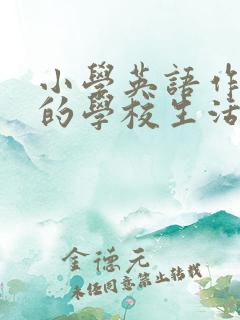 小學英語作
的學校生活
金德元
未經同意禁止轉載